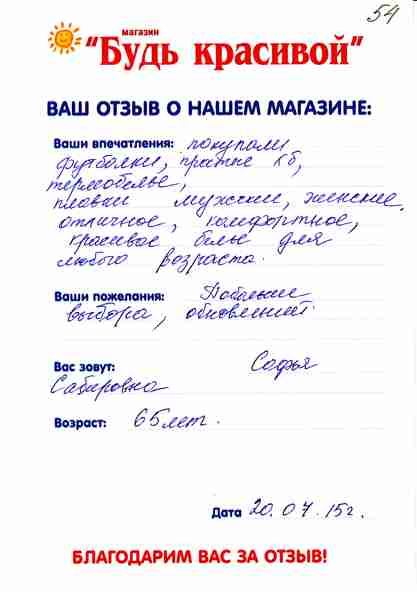 54
магазин
"Будь красивой"
ВАШ ОТЗЫВ О НАШЕМ МАГАЗИНЕ:
Ваши впечатления: покупали
футболки, простые хб,
термобелье,
плавки мужские, женские,
отличное, комфортное,
красивое белье для
любого возраста.
Ваши пожелания: Побольше
выбора, обновлений.
Вас зовут: Софья
Сабировна
Возраст: 65 лет.
Дата 20.07.15г.
БЛАГОДАРИМ ВАС ЗА ОТЗЫВ!